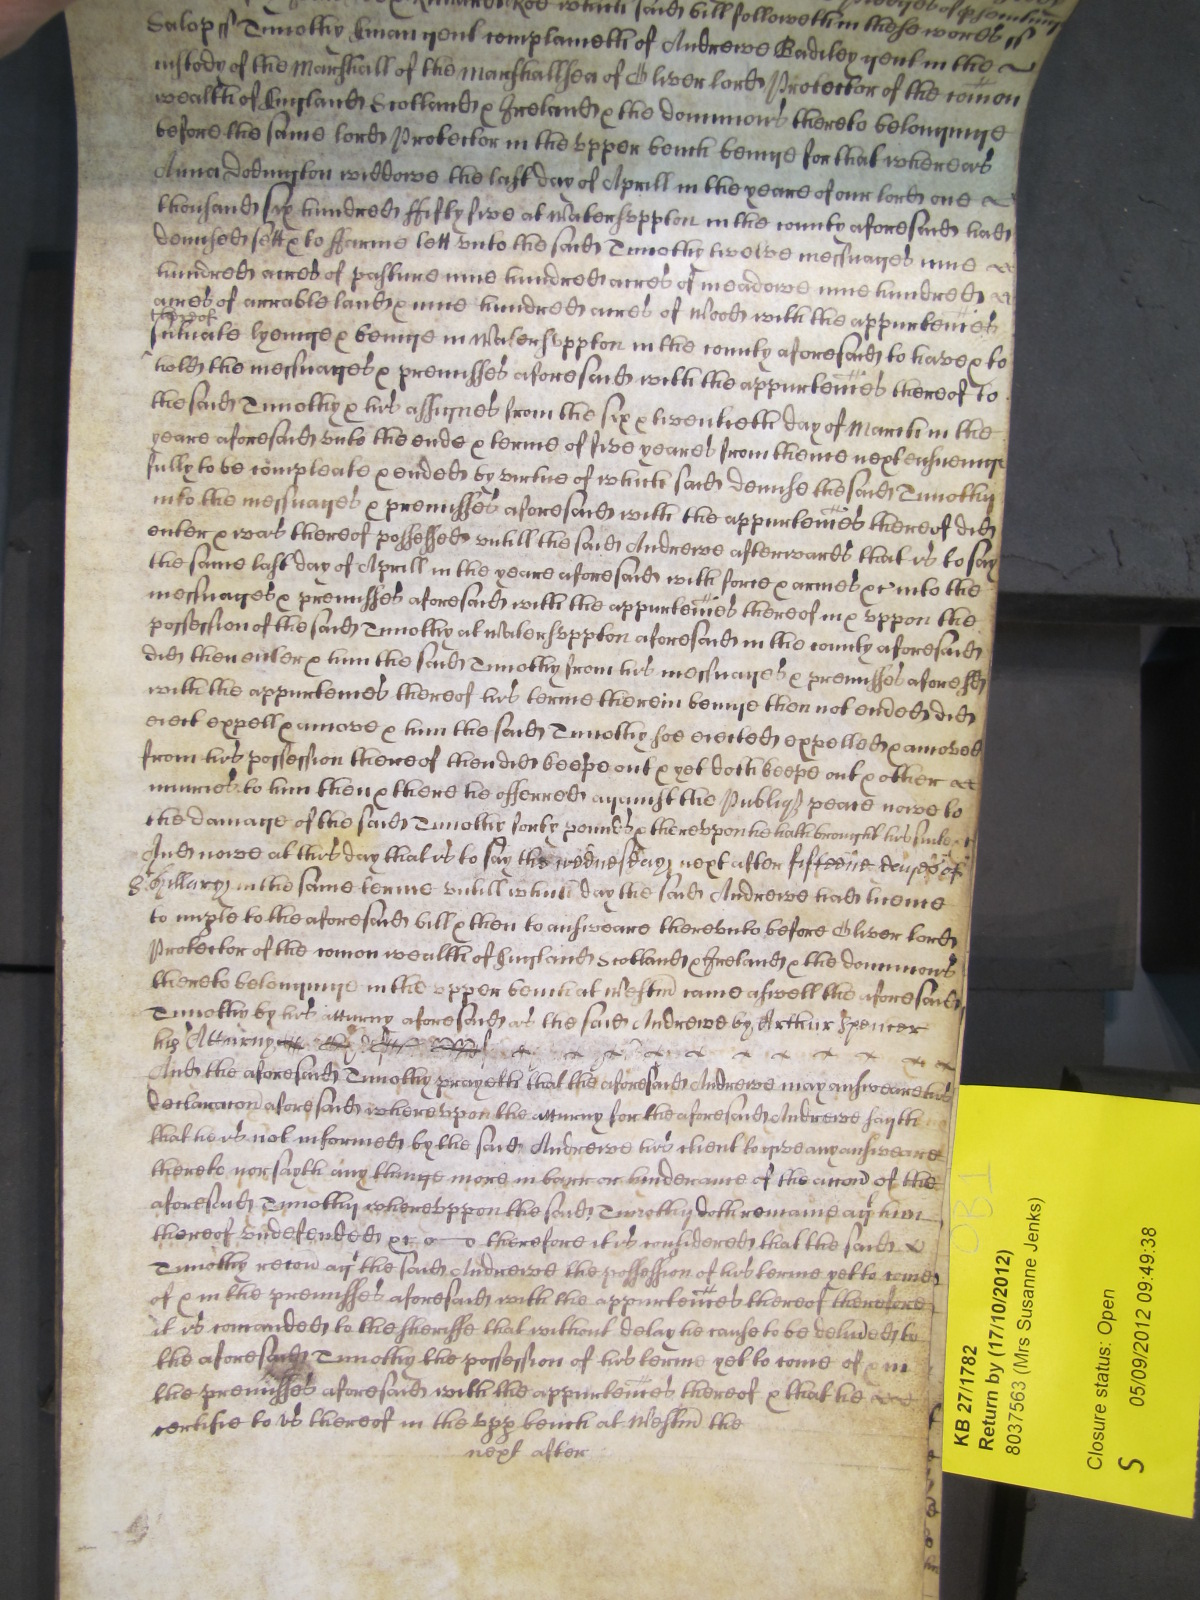 Richard Roe which said bill followeth in these words ss
Salop ss Timothy gent complaineth of Andrewe Badiley gent in the
custody of the Marshall of the Marshallsea of Oliver lord Protector of the comon
wealth of England Scotland & Ireland & the dominions thereto belonginge
before the same lord Protector in the upper bench beinge for that whereas
Anna Dodington widdowe the last day of Aprill in the yeare of our lord one
thousand six hundred ffifty five at Watersuppton in the county aforesaid had
demised sett & to ffarme lett unto the said Timothy twelve messuages nine
hundred acres of pasture nine hundred acres of meadowe nine hundred
acres of arrable land & nine hundred acres of Wood with the appurtences
thereof
scituate lyeinge & beinge in Watersuppton in the county aforesaid to have & to
hold the messuages & premisses aforesaid with the appurtences thereof to
the said Timothy & his assignes from the six & twentieth day of March in the
yeare aforesaid unto the ende & terme of five yeares from thence next ensueinge
fully to be compleate & ended by virtue of which said demise the said Timothy
into the messuages & premisses aforesaid with the appurtences thereof did
enter & was thereof possessed untill the said Andrewe afterwards that is to say
the same last day of Aprill in the yeare aforesaid with force & armes &c into the
messuages & premisses aforesaid with the appurtences thereof in & uppon the
possession of the said Timothy at Watersuppton aforesaid in the county aforesaid
did then enter & him the said Timothy from his messuages & premisses aforesd
with the appurtences thereof his terme therein beinge then not ended did
eject expell & amove & him the said Timothy soe ejected expelled & amoved
from his possession thereof then did keepe out & yet doth keepe out & other
injuries to him then & there he offerred against the Publiq peace nowe to
the damage of the said Timothy forty pounds & thereupon he hath brought his suite &c
And nowe at this day that is to say the wednesday next after fifteene dayes of
S Hillary in the same terme untill which day the said Andrewe had licence
to imple to the aforesaid bill & then to answeare thereunto before Oliver lord
Protector of the comon wealth of England Scotland & Ireland & the dominions
thereto belonginge in the upper bench at Westm came aswell the aforesaid
Timothy by his atturny aforesaid as the said Andrewe by Arthur Spencer
his Atturny
And the aforesaid Timothy prayeth that the aforesaid Andrewe may answeare his
declaracon aforesaid whereupon the atturny for the aforesaid Andrewe sayth
that he is not informed by the said Andrewe his client to give any answeare
thereto nor sayth any thinge more in barr or hinderance of the accon of the
aforesaid Timothy whereuppon the said Timothy doth remaine agt him
thereof undefended &c therefore it is considered that the said
Timothy recou agt the said Andrewe the possession of his terme yet to come
of & in the premisses aforesaid with the appurtences thereof therefore
it is comanded to the sheriffe that without delay he cause to be delivred to
the aforesaid Timothy the possession of his terme yet to come of & in
the premisses aforesaid with the appurtences thereof & that he
certifie to us thereof in the upp bench at Westm the
next after
KB 27/1782
Return by (17/10/2012)
8037563 (Mrs Susanne Jenks)
Closure status: Open
S 05/09/2012 09:49:38
OB1